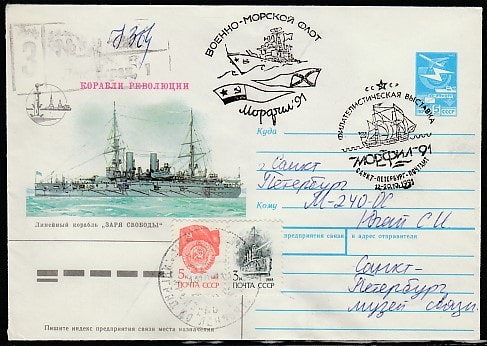 ВОЕННО-МОРСКОЙ ФЛОТ
Морфил'91
КОРАБЛИ РЕВОЛЮЦИИ
СССР
ФИЛАТЕЛИСТИЧЕСКАЯ ВЫСТАВКА
"МОРФИЛ-91"
САНКТ-ПЕТЕРБУРГ, ПОЧТАМТ
ПОЧТА СССР
Куда
г. Санкт
Петербург
Кому
М-240-ОС
Линейный корабль "ЗАРЯ СВОБОДЫ"
предприятия связи и адрес отправителя
Санкт-
Петербург
музей связи.
5к
ПОЧТА СССР
3к
ПОЧТА СССР
Пишите индекс предприятия связи места назначения